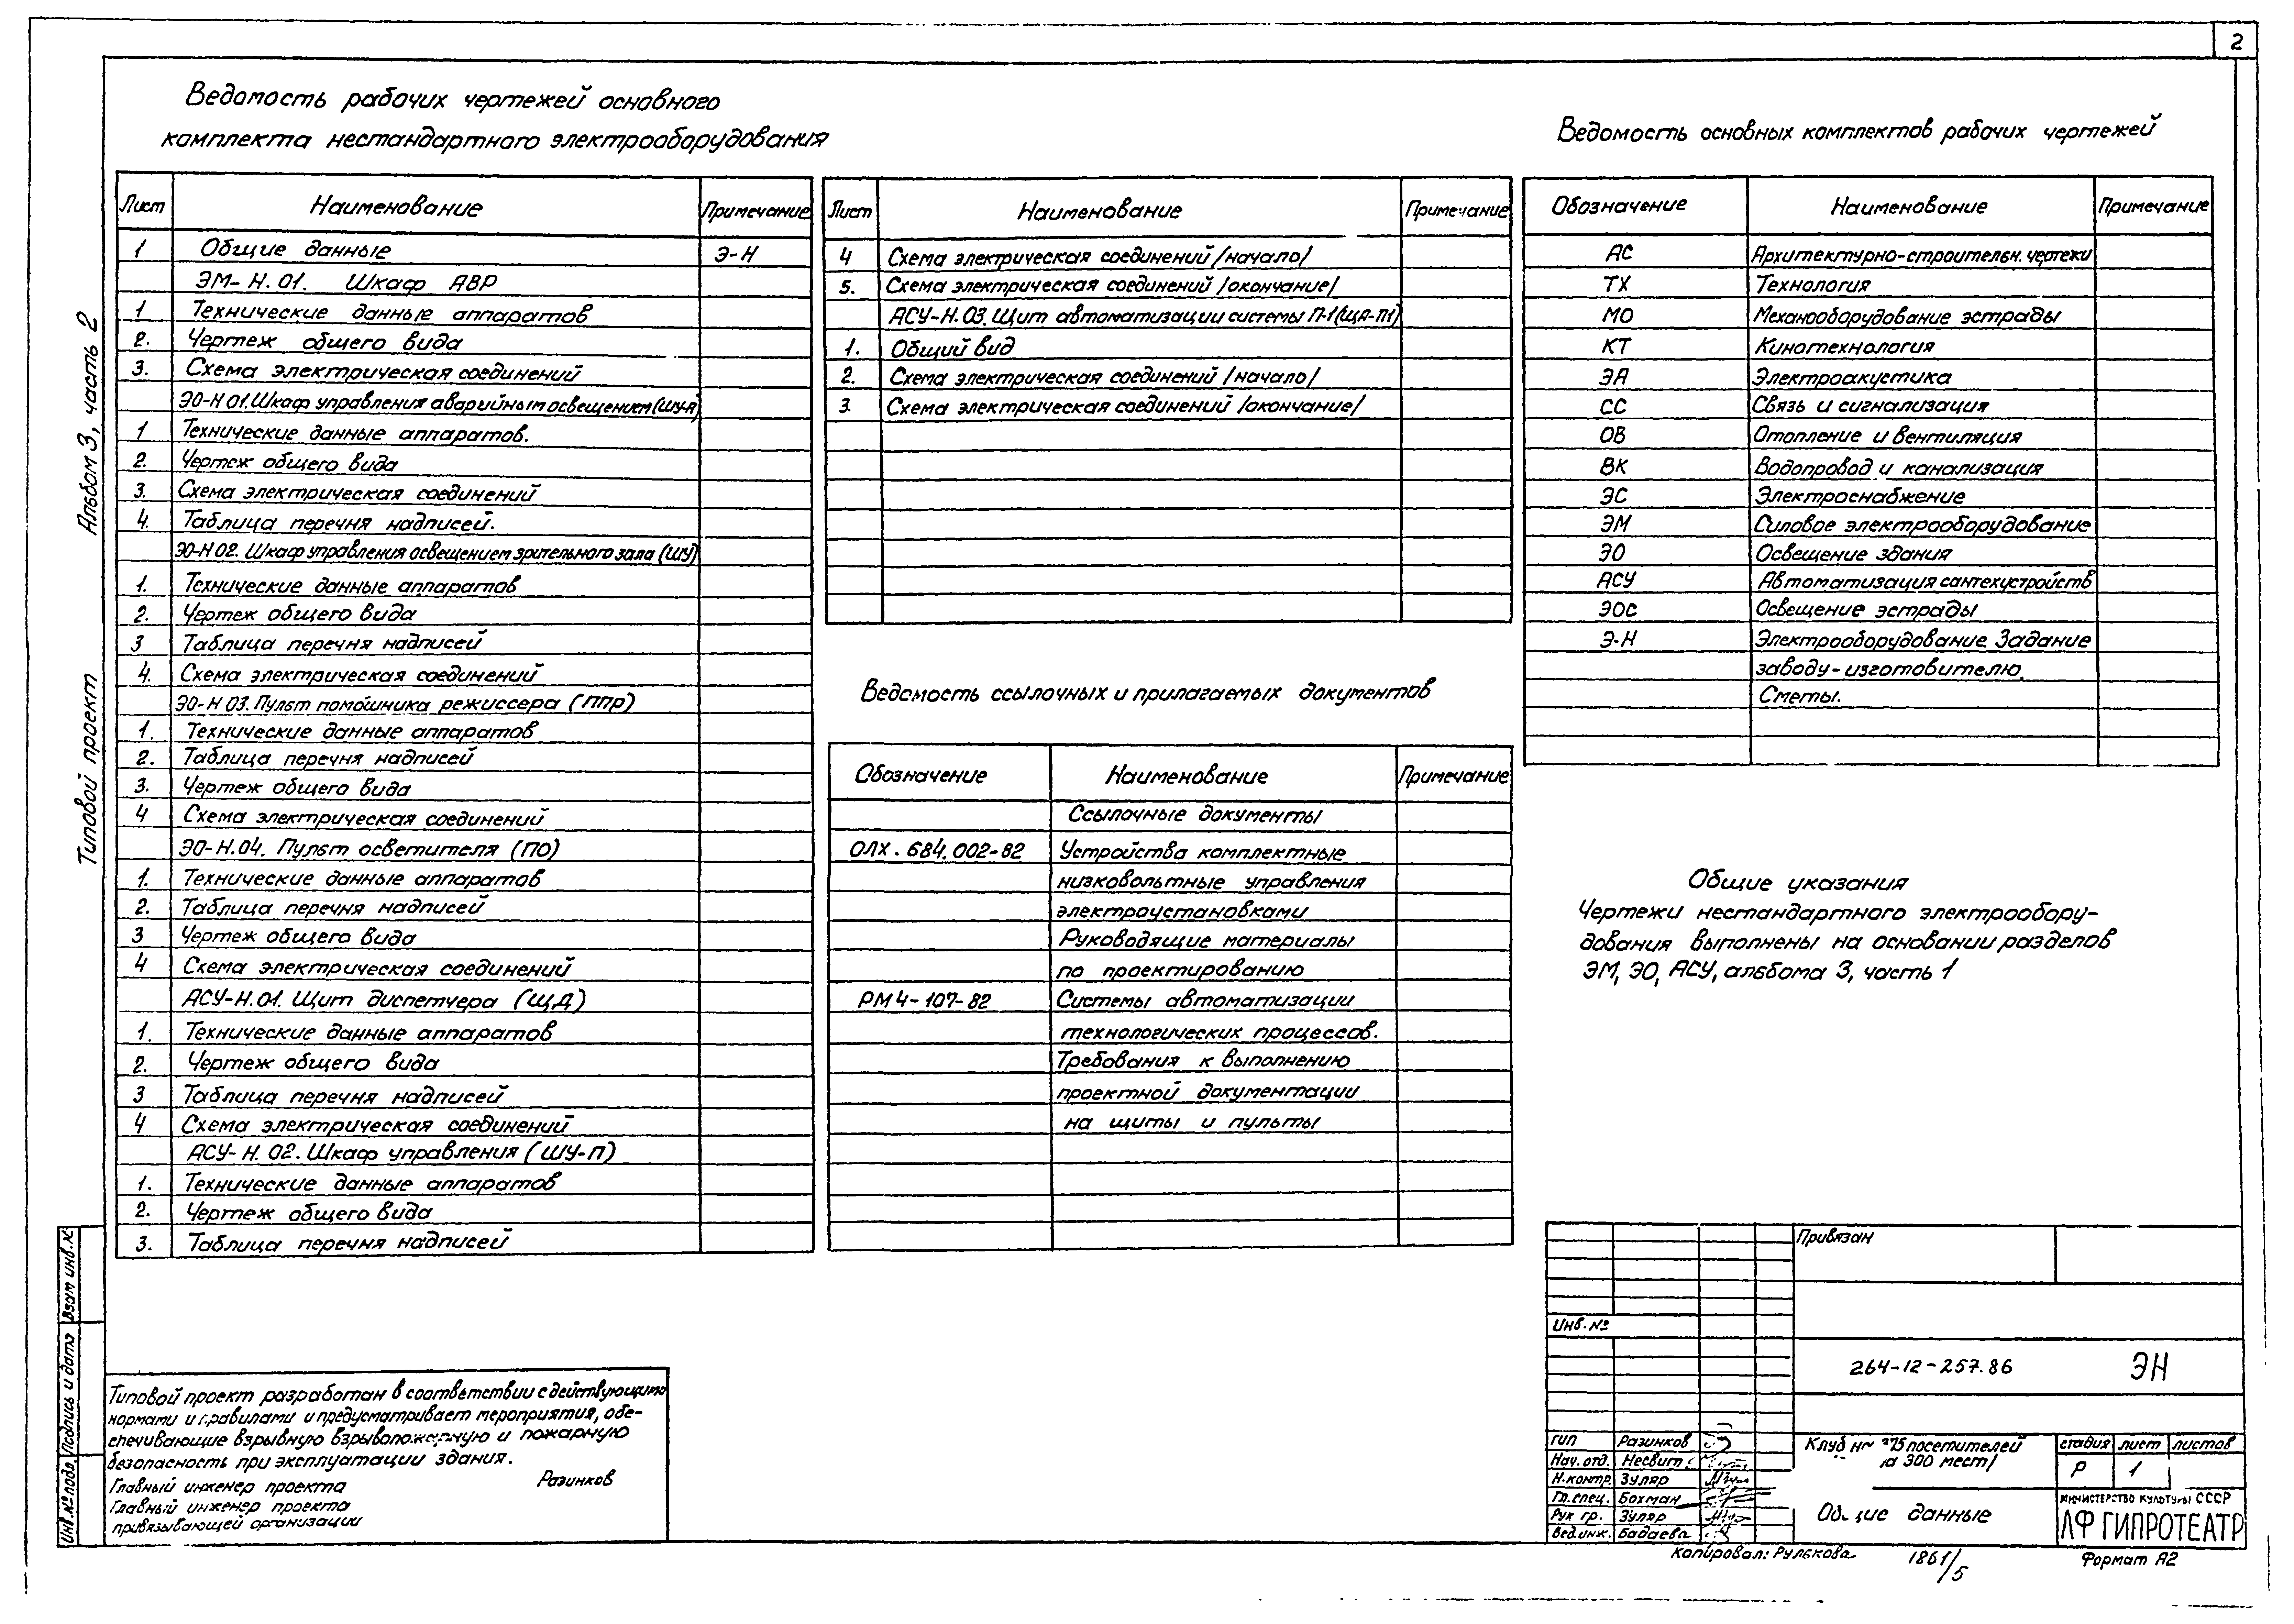 2
Ведомость рабочих чертежей основного
комплекта нестандартного электрооборудования
Лист Наименование Примечание
1 Общие данные Э-Н
ЭМ-Н.01. Шкаф АВР
1 Технические данные аппаратов
2. Чертеж общего вида
3. Схема электрическая соединений
ЭО-Н 01. Шкаф управления аварийным освещением (ШУ-А)
1 Технические данные аппаратов.
2. Чертеж общего вида
3. Схема электрическая соединений
4. Таблица перечня надписей.
ЭО-Н 02. Шкаф управления освещением зрительного зала (ШУ)
1. Технические данные аппаратов
2. Чертеж общего вида
3 Таблица перечня надписей
4. Схема электрическая соединений
ЭО-Н 03. Пульт помошника режиссера (ППр)
1. Технические данные аппаратов
2. Таблица перечня надписей
3. Чертеж общего вида
4 Схема электрическая соединений
ЭО-Н.04. Пульт осветителя (ПО)
1. Технические данные аппаратов
2. Таблица перечня надписей
3 Чертеж общего вида
4 Схема электрическая соединений
АСУ-Н.01. Щит диспетчера (ЩД)
1. Технические данные аппаратов
2. Чертеж общего вида
3 Таблица перечня надписей
4 Схема электрическая соединений
АСУ-Н.02. Шкаф управления (ШУ-П)
1. Технические данные аппаратов
2. Чертеж общего вида
3. Таблица перечня надписей
Лист Наименование Примечание
4 Схема электрическая соединений /начало/
5. Схема электрическая соединений /окончание/
АСУ-Н.03. Щит автоматизации системы П-1 (ЩА-П1)
1. Общий вид
2. Схема электрическая соединений /начало/
3. Схема электрическая соединений /окончание/
Ведомость ссылочных и прилагаемых документов
Обозначение Наименование Примечание
Ссылочные документы
ОЛХ.684.002-82 Устройства комплектные
низковольтные управления
электроустановками
Руководящие материалы
по проектированию
РМ4-107-82 Системы автоматизации
технологических процессов.
Требования к выполнению
проектной документации
на щиты и пульты
Ведомость основных комплектов рабочих чертежей
Обозначение Наименование Примечание
АС Архитектурно-строительн. чертежи
ТХ Технология
МО Механооборудование эстрады
КТ Кинотехнология
ЭА Электроакустика
СС Связь и сигнализация
ОВ Отопление и вентиляция
ВК Водопровод и канализация
ЭС Электроснабжение
ЭМ Силовое электрооборудование
ЭО Освещение здания
АСУ Автоматизация сантехустройств
ЭОС Освещение эстрады
Э-Н Электрооборудование. Задание
заводу-изготовителю.
Сметы.
Общие указания
Чертежи нестандартного электрообору-
дования выполнены на основании разделов
ЭМ, ЭО, АСУ, альбома 3, часть 1
Типовой проект Альбом 3, часть 2
Инв.№ подл. Подпись и дата Взам инв.№
Типовой проект разработан в соответствии с действующими
нормами и правилами и предусматривает мероприятия, обе-
спечивающие взрывную взрывопожарную и пожарную
безопасность при эксплуатации здания.
Главный инженер проекта Разинков
Главный инженер проекта
привязывающей организации
Привязан
Инв.№
264-12-257.86 ЭН
ГИП Разинков
Нач.отд. Несвит
Н.контр. Зуляр
Гл.спец. Бохман
Рук гр. Зуляр
Вед.инж. Бадаева
Клуб посетителей
300 мест/
стадия лист листов
Р 1
Общие данные
МИНИСТЕРСТВО КУЛЬТУРЫ СССР
ЛФ ГИПРОТЕАТР
Копировал: Рулькова 1861/5 Формат А2